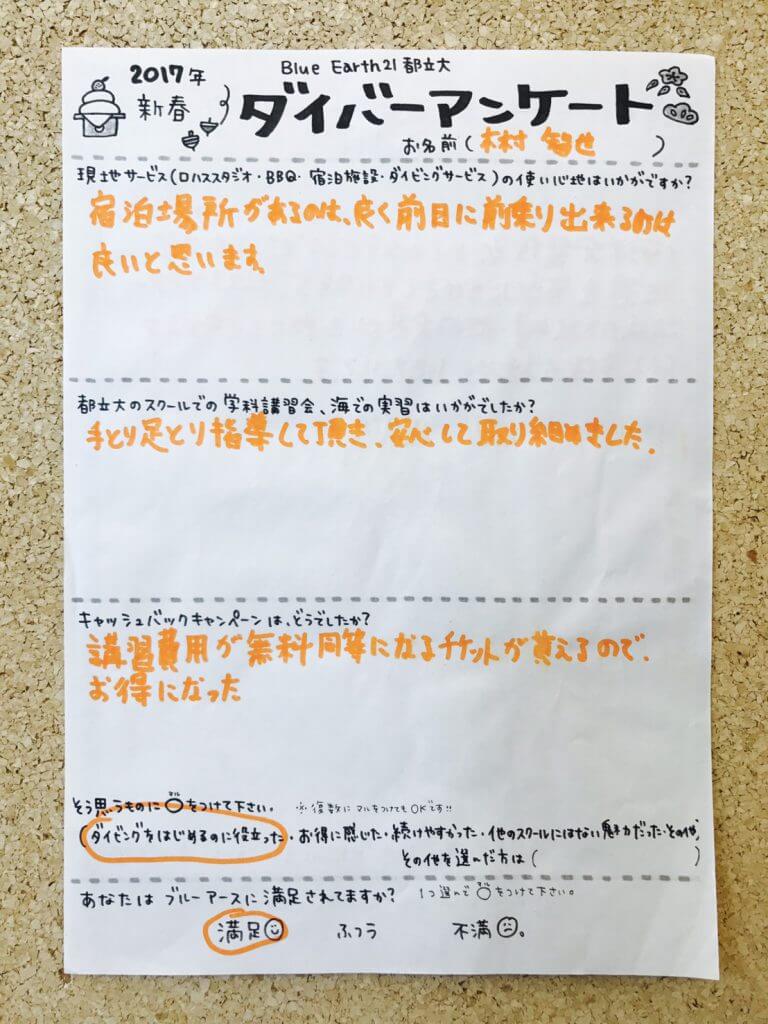 2017年
新春
Blue Earth21 都立大
ダイバーアンケート
お名前(木村 智也)
現地サービス(ロハススタジオ・BBQ・宿泊施設・ダイビングサービス)の使い心地はいかがですか?
宿泊場所があるのは、良く前日に前乗り出来るのは
良いと思います。
都立大のスクールでの学科講習会、海での実習はいかがでしたか?
手とり足とり指導して頂き、安心して取り組めました。
キャッシュバックキャンペーンは、どうでしたか?
講習費用が無料同等になるチケットが貰えるので、
お得になった
そう思うものに○をつけて下さい。 ※複数にマルをつけてもOKです!!
マル
(ダイビングをはじめるのに役立った・お得に感じた・続けやすかった・他のスクールにはない魅力だった・その他)
その他を選んだ方は( )
あなたはブルーアースに満足されてますか? 1つ選んで○をつけて下さい。
満足 ふつう 不満。